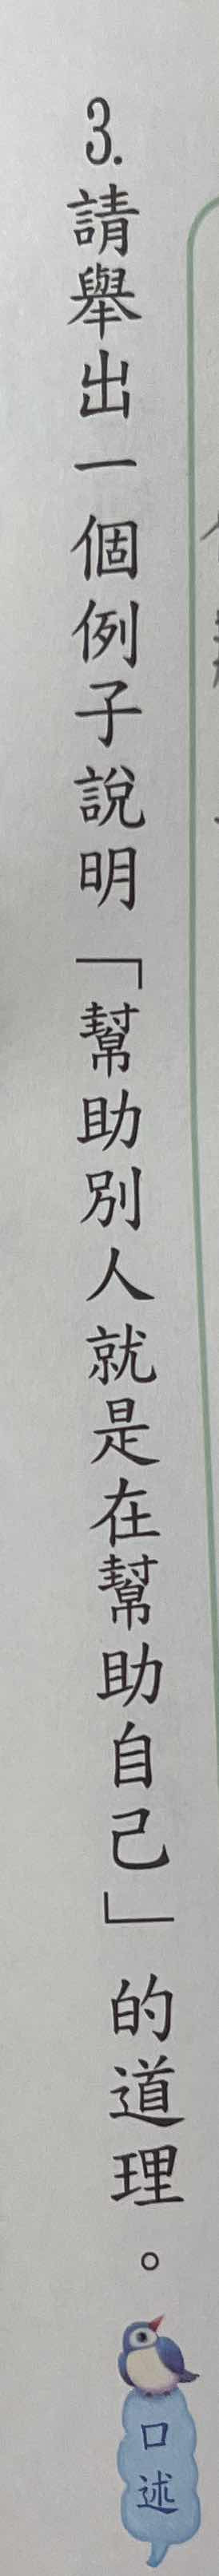 3.請舉出一個例子說明「幫助別人就是在幫助自己」的道理。
口述